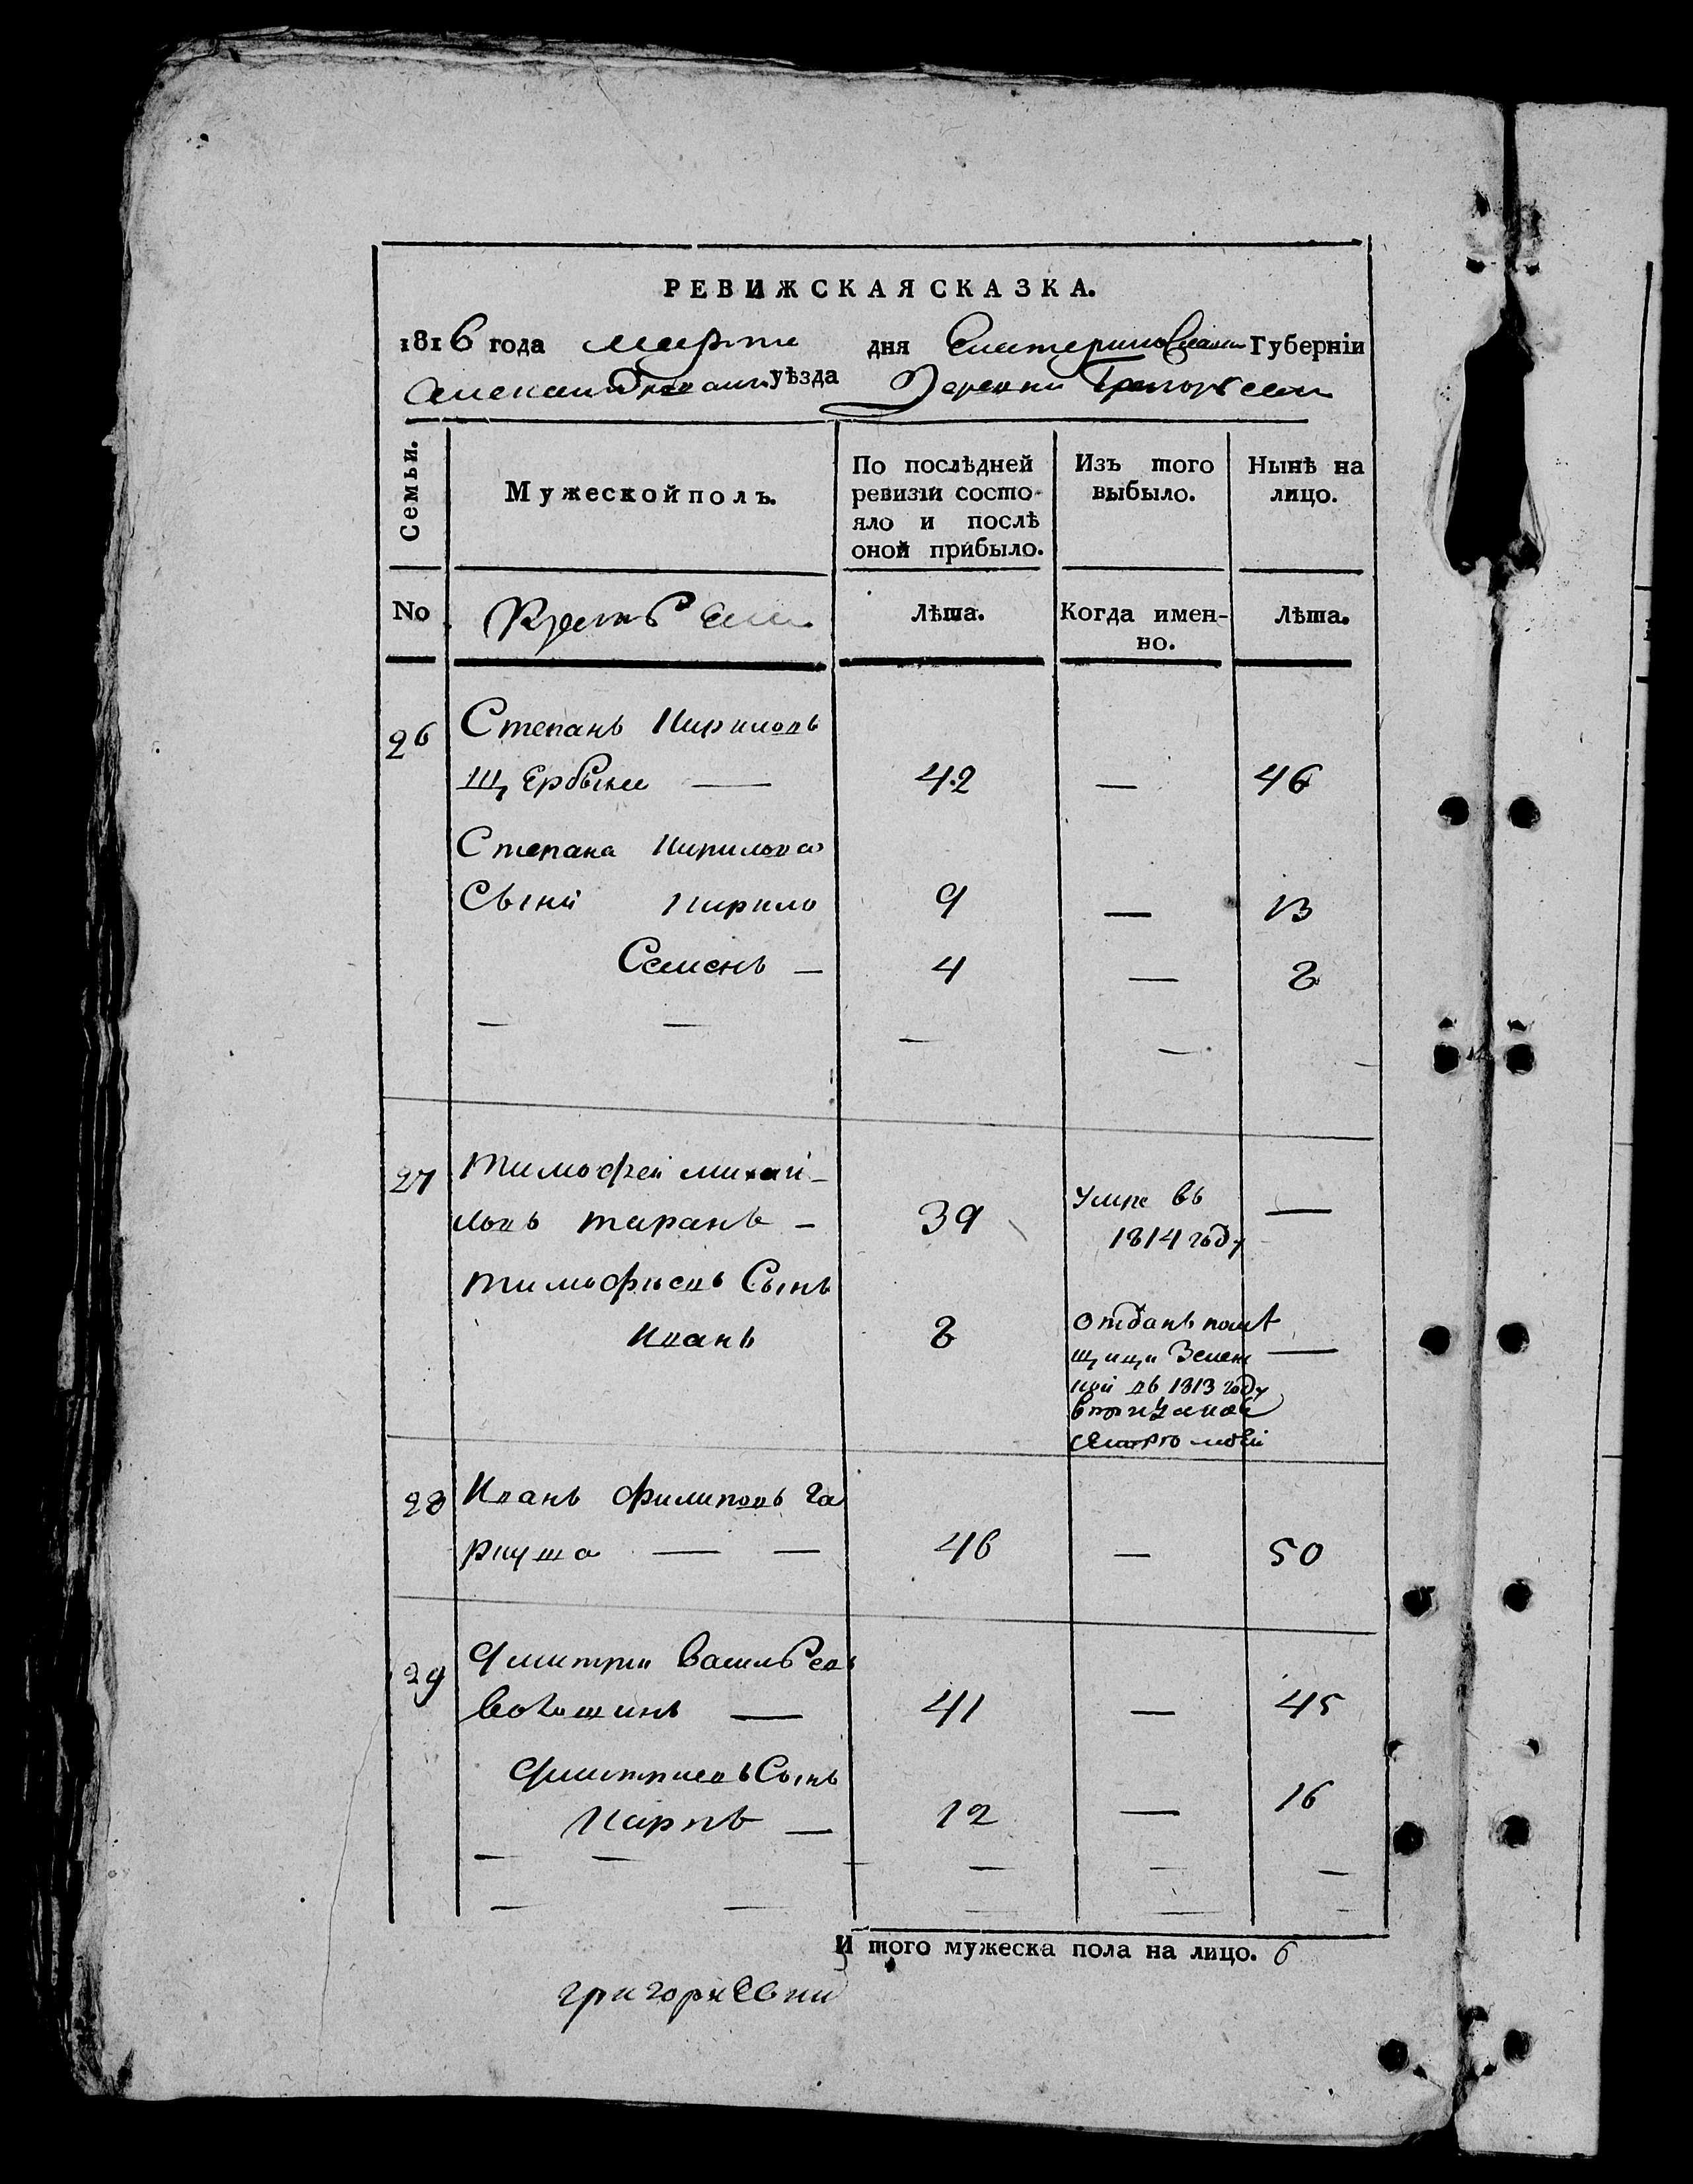 РЕВИЖСКАЯ СКАЗКА.
1816 года марта дня Екатеринославской Губерніи
Александровскаго уѣзда Деревни Григорьевки
Семьи.
Мужеской полъ.
По послѣдней ревизіи состояло и послѣ оной прибыло.
Изъ того выбыло.
Нынѣ на лицо.
No
Лѣта.
Когда именно.
Лѣта.
26 Степанъ Кириловъ
Щербина — 42 — 46
Степана Кирилова
Сыны Кирило 9 — 13
Семенъ — 4 — 8
27 Тимофей Михай-
ловъ Таранъ — 39 Умре въ —
1814 году
Тимофеевъ Сынъ
Иванъ 8 Отданъ помѣ
щицы —
въ 1813 году
28 Иванъ Филиповъ Га
ркуша — — 46 — 50
29 Дмитрій Васильевъ
Волошинъ — 41 — 45
Дмитріевъ Сынъ
Карпъ — 12 — 16
И того мужеска пола на лицо. 6